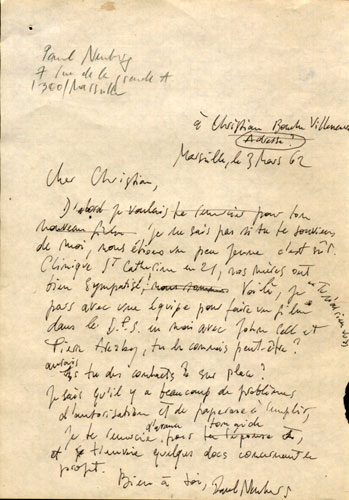 Paul
7 rue de la
Marseille
à Christian
Adresse
Marseille, le 3 Mars 62
Cher Christian,
D'abord je voulais te remercier pour ton
je ne sais pas si tu te souviens
de moi, nous étions un peu jeune c'est sûr.
Clinique St Catherine en 21, nos mères ont
bien sympathisé, Voilà, je
pars avec une équipe pour faire un film
dans le en mai avec John et
Pierre tu le connais peut-être ?
aurais
tu des contacts sur place ?
Je sais qu'il y a beaucoup de problèmes
d'autorisation et de paperasse à remplir,
je te remercie d'avance pour ta réponse
et te transmets quelques docs concernant le
projet.
Bien à toi, Paul